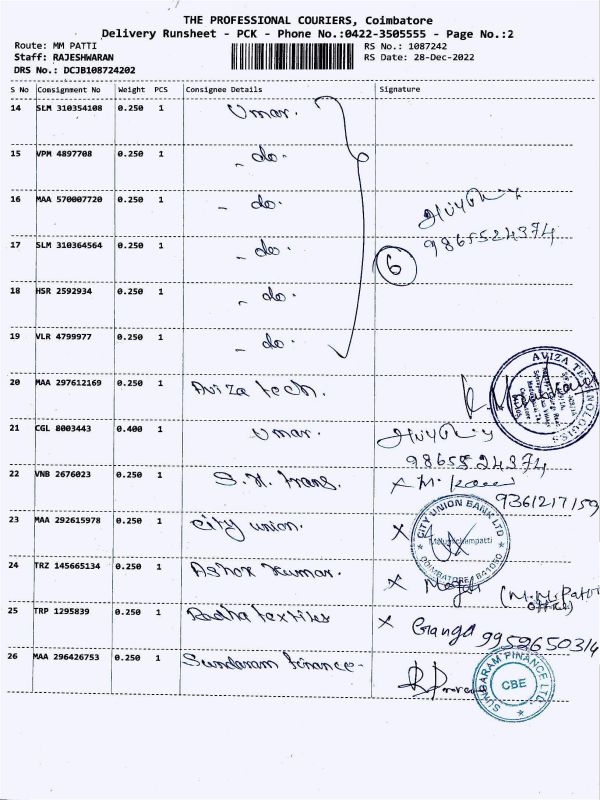 THE PROFESSIONAL COURIERS, Coimbatore
Delivery Runsheet - PCK - Phone No.:0422-3505555 - Page No.:2
Route: MM PATTI RS No.: 1087242
Staff: RAJESHWARAN RS Date: 28-Dec-2022
DRS No.: DCJB108724202
S No Consignment No Weight PCS Consignee Details Signature
14 SLM 310354108 0.250 1 Umar.
15 VPM 4897708 0.250 1 - do.
16 MAA 570007720 0.250 1 - do.
9865524374
17 SLM 310364564 0.250 1 - do.
6
18 HSR 2592934 0.250 1 - do.
19 VLR 4799977 0.250 1 - do.
20 MAA 297612169 0.250 1 Aviza tech.
AVIZA TECHNOLOGIES
21 CGL 8003443 0.400 1 Umar.
9865524374
22 VNB 2676023 0.250 1 S.N. trans. x M.
9361217159
23 MAA 292615978 0.250 1 city union. x
CITY UNION BANK LTD
COIMBATORE 641050
24 TRZ 145665134 0.250 1 Ashok Kumar. x (M.M. Patti
office)
25 TRP 1295839 0.250 1 Radha textiles x Ganga 9952650314
26 MAA 296426753 0.250 1 Sundaram finance-
SUNDARAM FINANCE LTD.
CBE